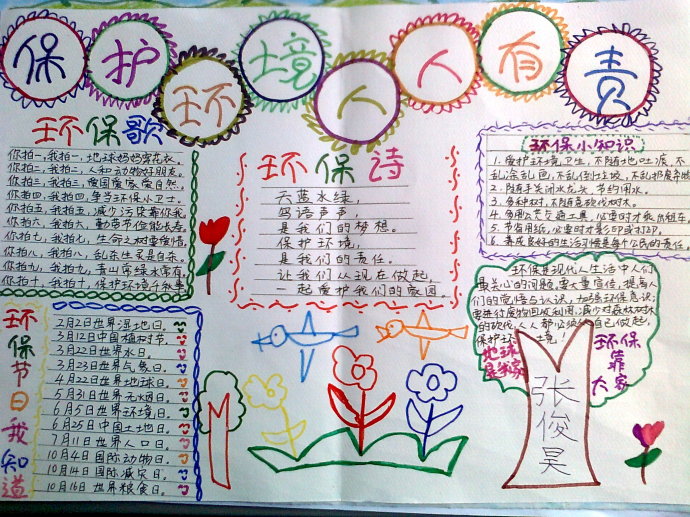 保护环境人人有责
环保歌
你拍一,我拍一,地球妈妈穿花衣。
你拍二,我拍二,人和动物好朋友。
你拍三,我拍三,爱国爱家爱自然。
你拍四,我拍四,争当环保小卫士。
你拍五,我拍五,减少污染靠你我。
你拍六,我拍六,勤劳节俭能长寿。
你拍七,我拍七,生命之树要爱惜。
你拍八,我拍八,乱杀生灵是自杀。
你拍九,我拍九,青山常绿水常有。
你拍十,我拍十,保护环境千秋事
环保诗
天蓝水绿,
鸟语声声,
是我们的梦想。
保护环境,
是我们的责任。
让我们从现在做起,
一起爱护我们的家园。
环保小知识
1.爱护环境卫生,不随地吐痰,不
乱涂乱画,不乱倒垃圾,不乱扔废弃物
2.随手关闭水龙头,节约用水。
3.多种树,不随意砍伐树木。
4.多用公共交通工具,必要时才乘出租车。
5.节省用纸,必要时才影印或打印。
6.养成良好的生活习惯是每个公民的责任。
环保节日我知道
2月2日世界湿地日。
3月12日中国植树节。
3月22日世界水日。
3月23日世界气象日。
4月22日世界地球日。
5月31日世界无烟日。
6月5日世界环境日。
6月25日中国土地日。
7月11日世界人口日。
10月4日国际动物日。
10月14日国际减灾日。
10月16日世界粮食日。
环保是现代人生活中人们
最关心的问题,要大量宣传,提高人
们的觉悟与认识,加强环保意识;
要进行废物回收利用,减少对森林树木
的砍伐,人人都必须从自己做起,
保护环
境!
地球
是我家
环保
靠
大家
张俊昊